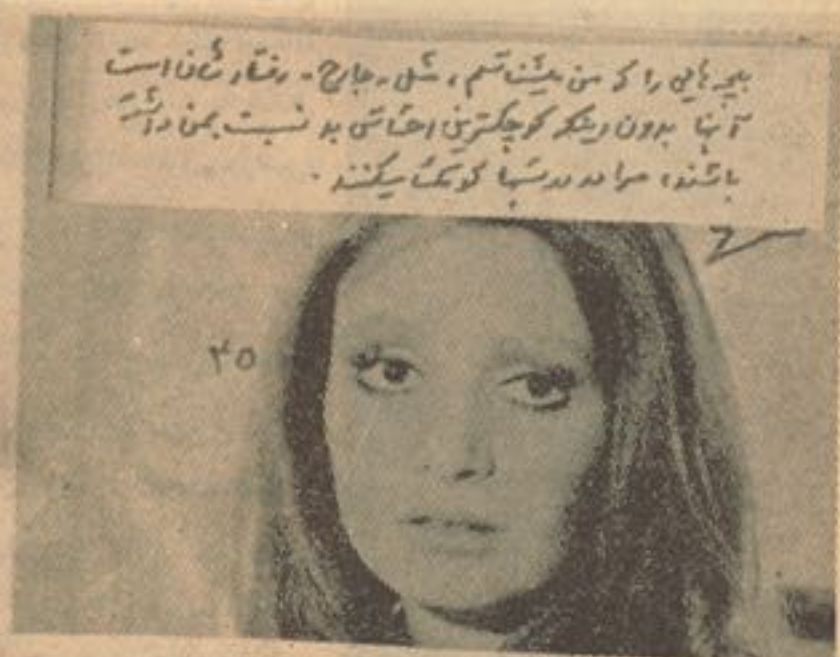 بچه هایی را که من میشناسم، مثل جارج - رفتارشان است
آنها بدون اینکه کوچکترین احساسی به نسبت بمن داشته
باشند، مرا در کوتک میکنند .
۳۵